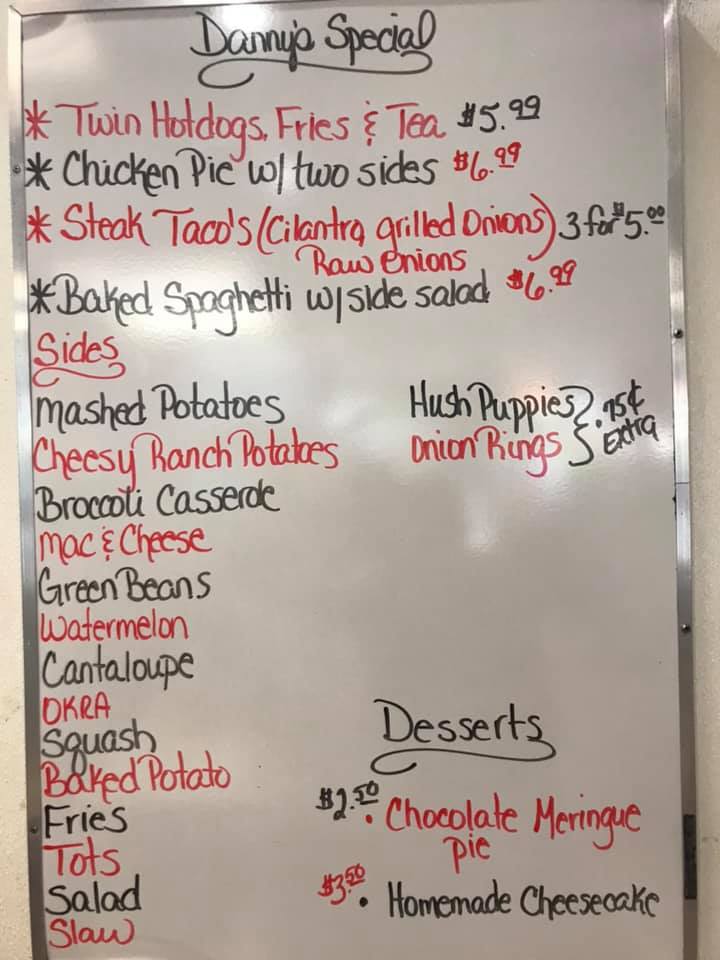 Danny's Special
* Twin Hotdogs, Fries & Tea $5.99
* Chicken Pie w/ two sides $6.99
* Steak Taco's (Cilantra, grilled Onions) 3 for $5.00
Raw Onions
* Baked Spaghetti w/side salad $6.99
Sides
Mashed Potatoes
Cheesy Ranch Potatoes
Broccoli Casserole
Mac & Cheese
Green Beans
Watermelon
Cantaloupe
OKRA
Squash
Baked Potato
Fries
Tots
Salad
Slaw
Hush Puppies } .75¢
Onion Rings } Extra
Desserts
$2.50 • Chocolate Meringue
Pie
$3.50 • Homemade Cheesecake